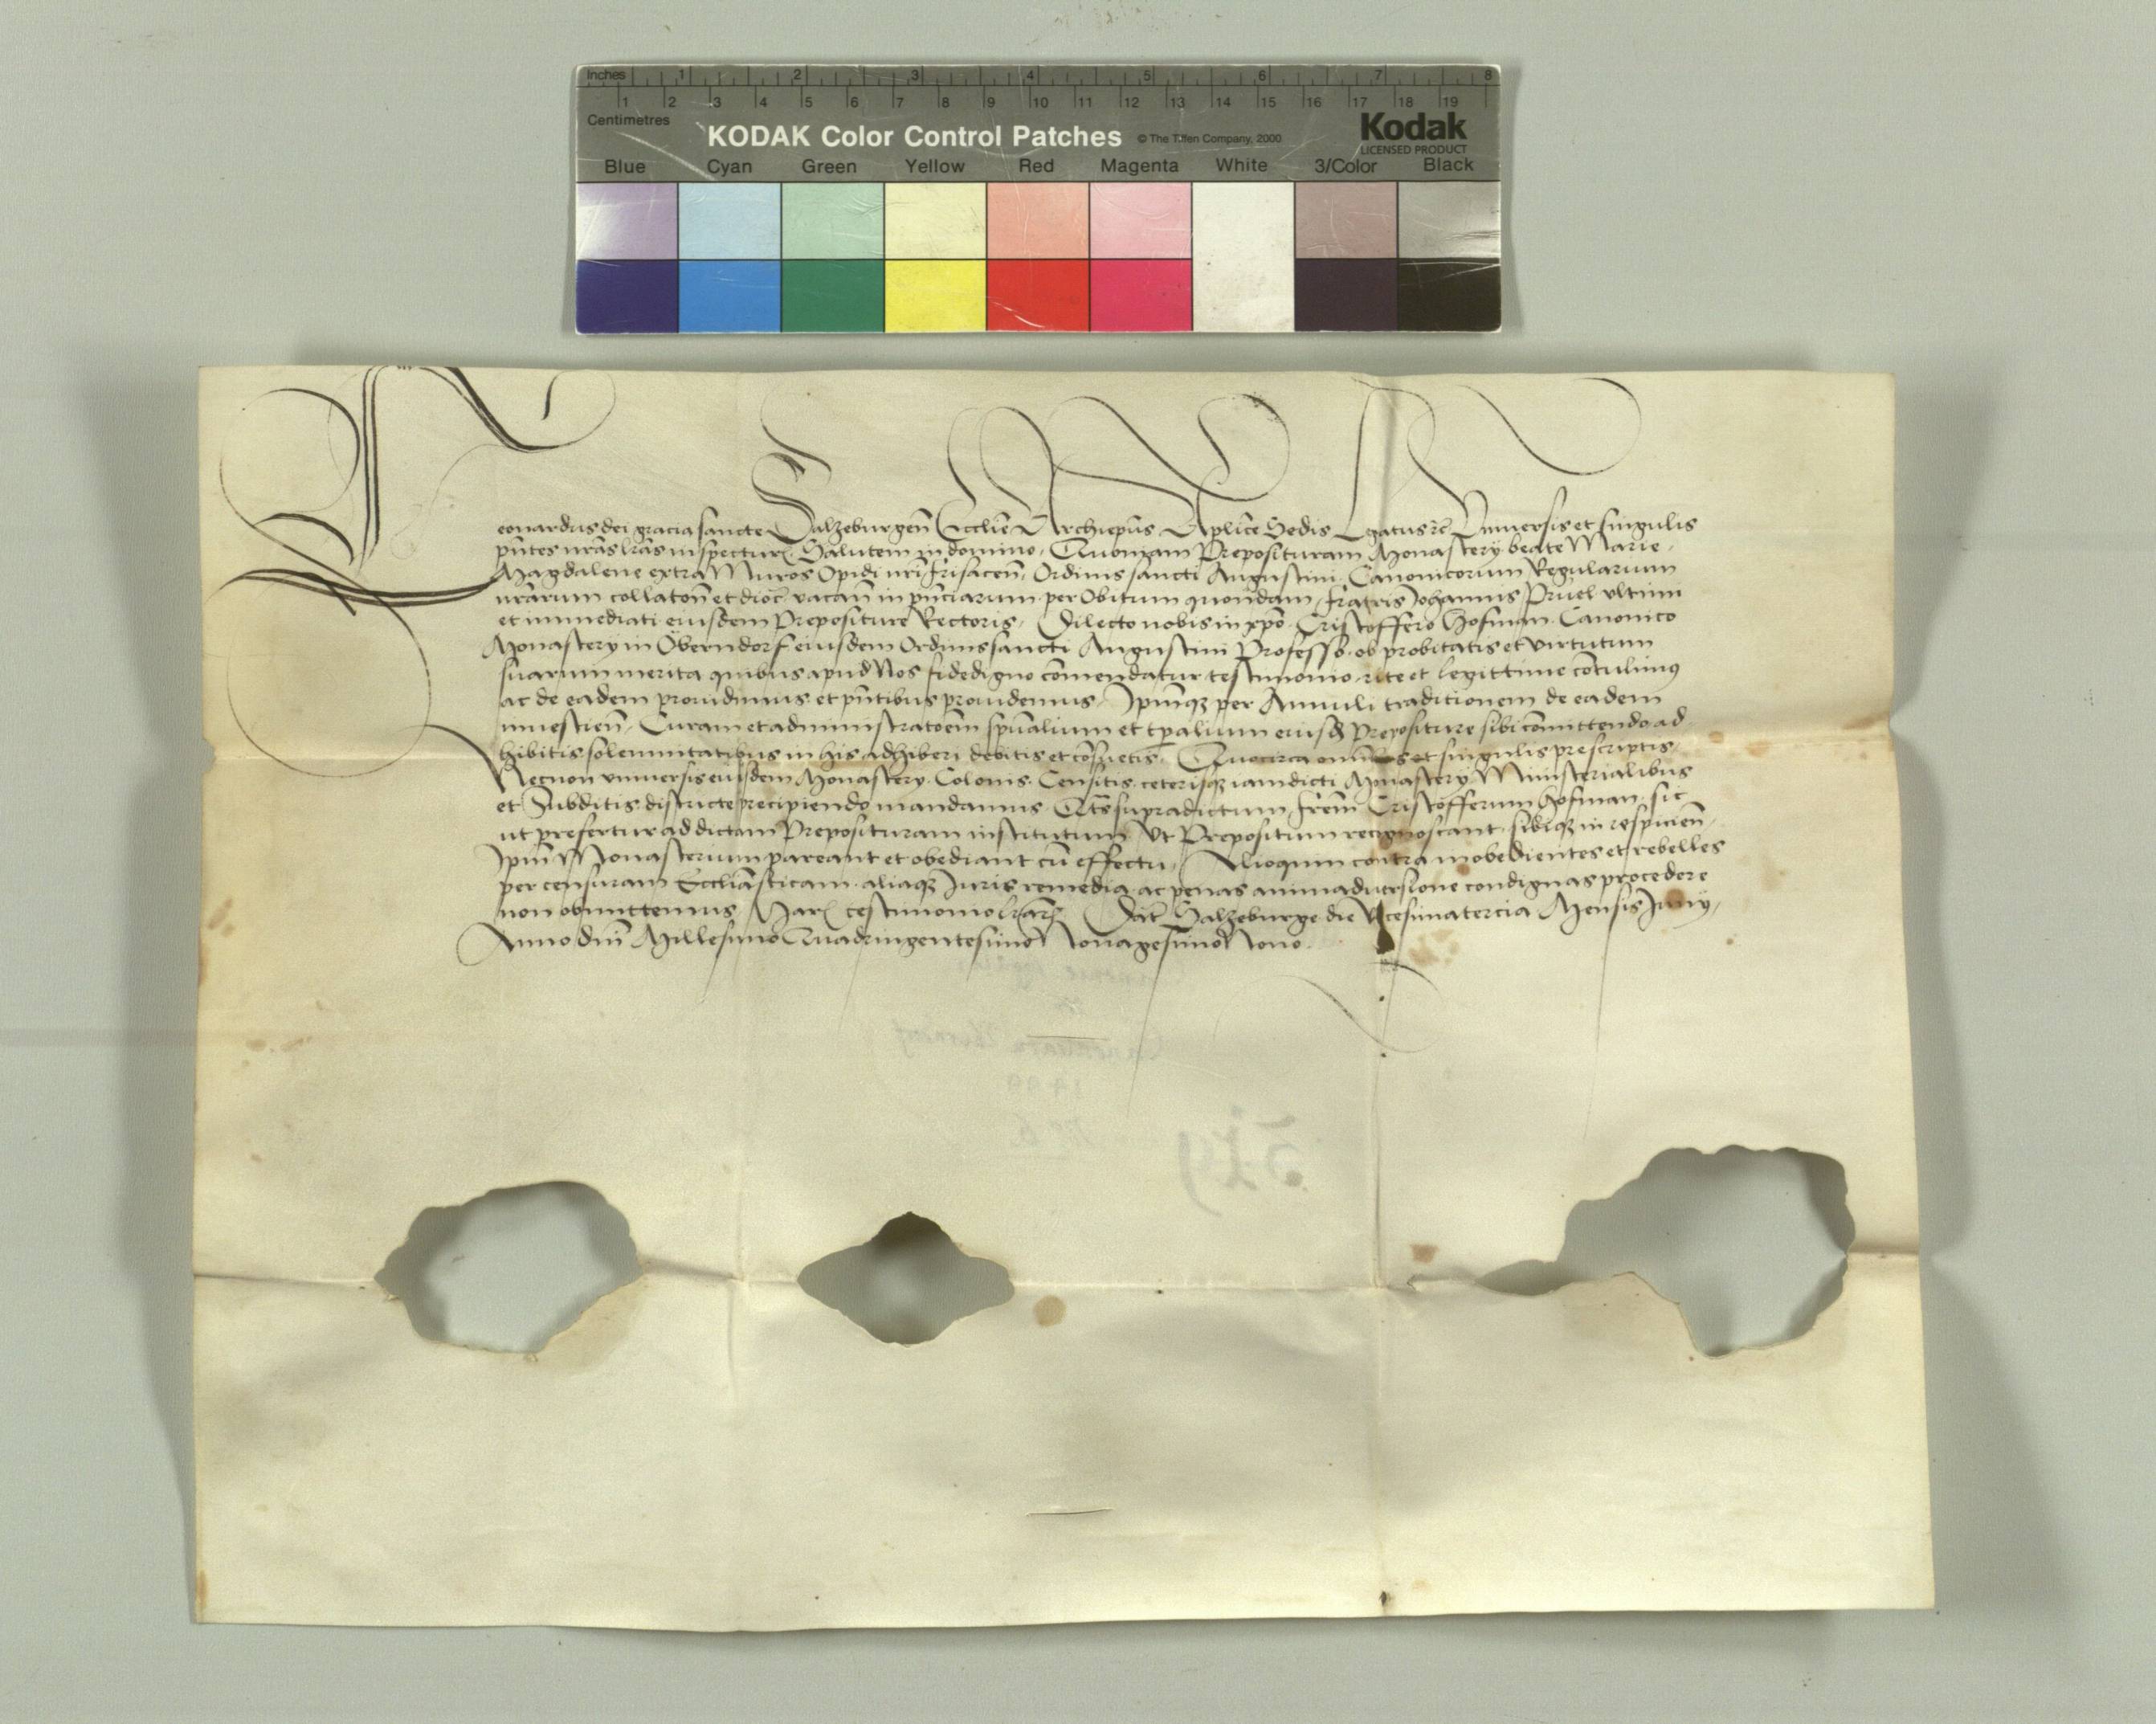 Inches 1 2 3 4 5 6 7 8
1 2 3 4 5 6 7 8 9 10 11 12 13 14 15 16 17 18 19
Centimetres
KODAK Color Control Patches © The Tiffen Company, 2000 Kodak
LICENSED PRODUCT
Blue Cyan Green Yellow Red Magenta White 3/Color Black
Leonardus dei gracia sancte Salzeburgeñ Eccliẽ Archiep̃us Aplice Sedis Legatus rc̃ Vniuersis et singulis
pñtes nr̃as lr̃as inspectur Salutem in domino, Quoniam Preposituram Monastery beate Marie
Magdalene extra Muros Opidi nr̃i frisaceñ, Ordinis sancti Augustini Canonicorum Regularium
nr̃arum collatoñ et dioc̃ vacañ in pñciarum per Obitum quondam fratris Johannis Pruel vltimi
et immediati eiusdem Prepositure Rectoris, Dilecto nobis in xp̃o Cristoffero Hofman Canonico
Monastery in Öberndorf eiusdem Ordinis sancti Augustini Professo ob probitatis et virtutum
suarum merita quibus apud Nos fidedigno com̃endatur testimonio rite et legittime cõtulimus
ac de eadem prouidimus et pñtibus prouidemus, Ipm̃qz per Annuli traditionem de eadem
inuestieñ, Curam et administratoẽm spũalium et tp̃alium eiusd Prepositure sibi cõmittendo ad
hibitis solemnitatibus in his adhiberi debitis et cõsuetis, Quocirca omnibus et singulis prescriptis
Necnon vniuersis eiusdem Monastery Colonis Censitis ceterisqz iamdicti Monastery Ministerialibus
et Subditis districte precipiendo mandamus Qts̃ supradictum frẽm Cristofferum hofman sic
ut prefertur ad dictam Preposituram institutum Vt Prepositum recognoscant sibiqz in respicieñ
Ipm̃ Monasterium pareant et obediant cũ effectu, Alioquim contra inobedientes et rebelles
per censuram Eccliãsticam aliaqz Iuris remedia ac penas animaduersione condignas procedere
non obmittemus Har testimonio lr̃ar Dat̃ Salzeburge die Vicesimatercia Mensis Iuny,
Anno dñi Millesimo Quadringentesimo Nonagesimo Nono